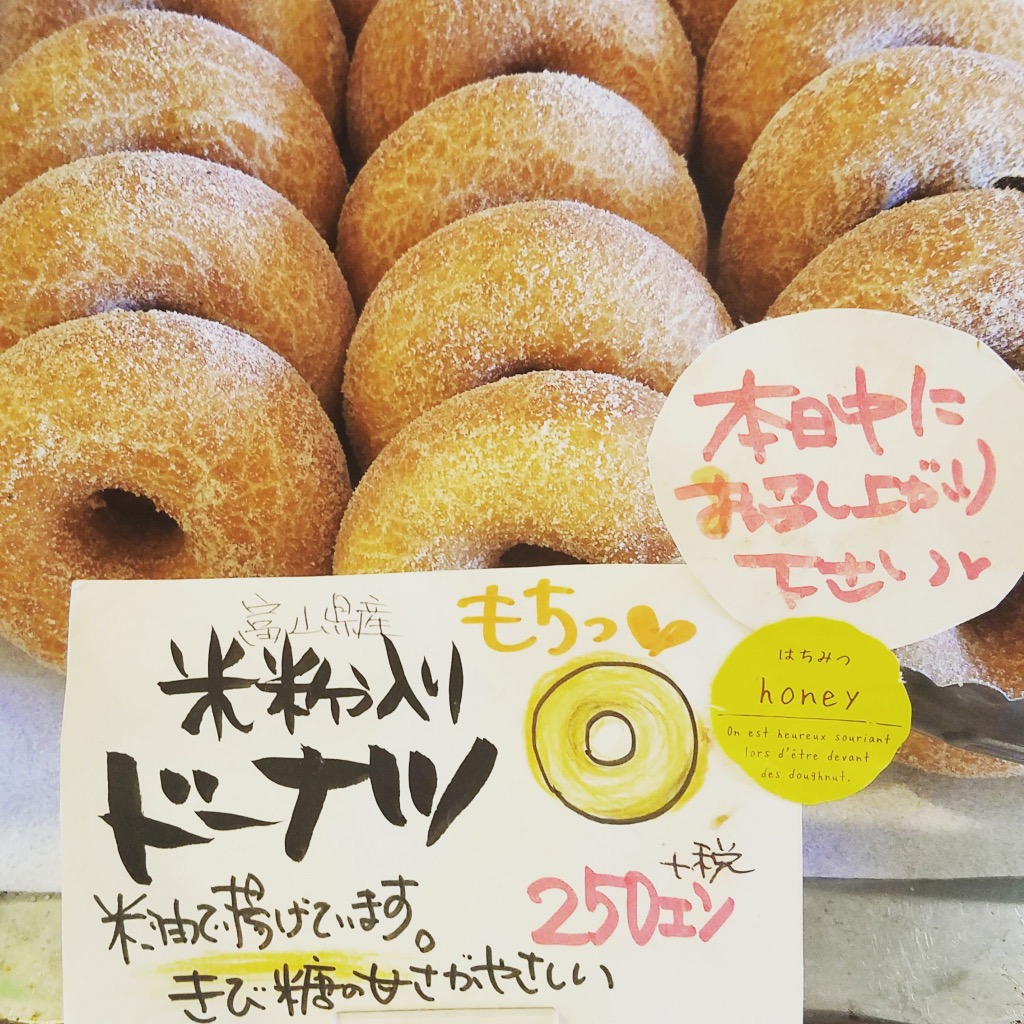 本日中に
お召し上がり
下さい♥
富山県産
もちっ♥
米粉入り
ドーナツ
はちみつ
honey
On est heureux souriant
lors d'être devant
des doughnut.
+税
250エン
米油で揚げています。
きび糖の甘さがやさしい